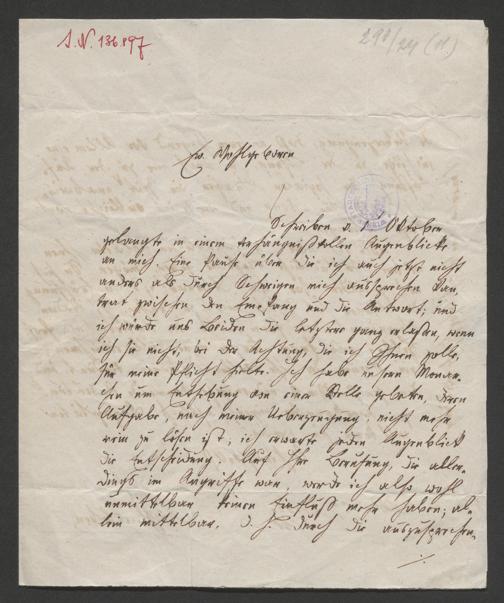 I.N. 136.897
298/24 (11.)
Ew. Wohlgeboren
Schreiben v. 1. Oktober
gelangte in einem verhängnißvollen Augenblicke
an mich. Eine Pause, über die ich auch jetzt nicht
anders als durch Schweigen mich aussprechen kann,
trat zwischen den Empfang und die Antwort; und
ich würde uns beiden die letztere ganz erlassen, wenn
ich sie nicht, bei der Achtung, die ich Ihnen zolle,
für meine Pflicht hielte. Ich habe unsern Monar-
chen um Enthebung von einer Stelle gebeten, deren
Aufgabe, nach meiner Ueberzeugung, nicht mehr
rein zu lösen ist; ich erwarte jeden Augenblick
die Entscheidung. Auf Ihre Berufung, die aller-
dings im Angriffe war, werde ich also wohl
unmittelbar keinen Einfluß mehr haben; al-
lein mittelbar, d. h. durch die auszusprechen-